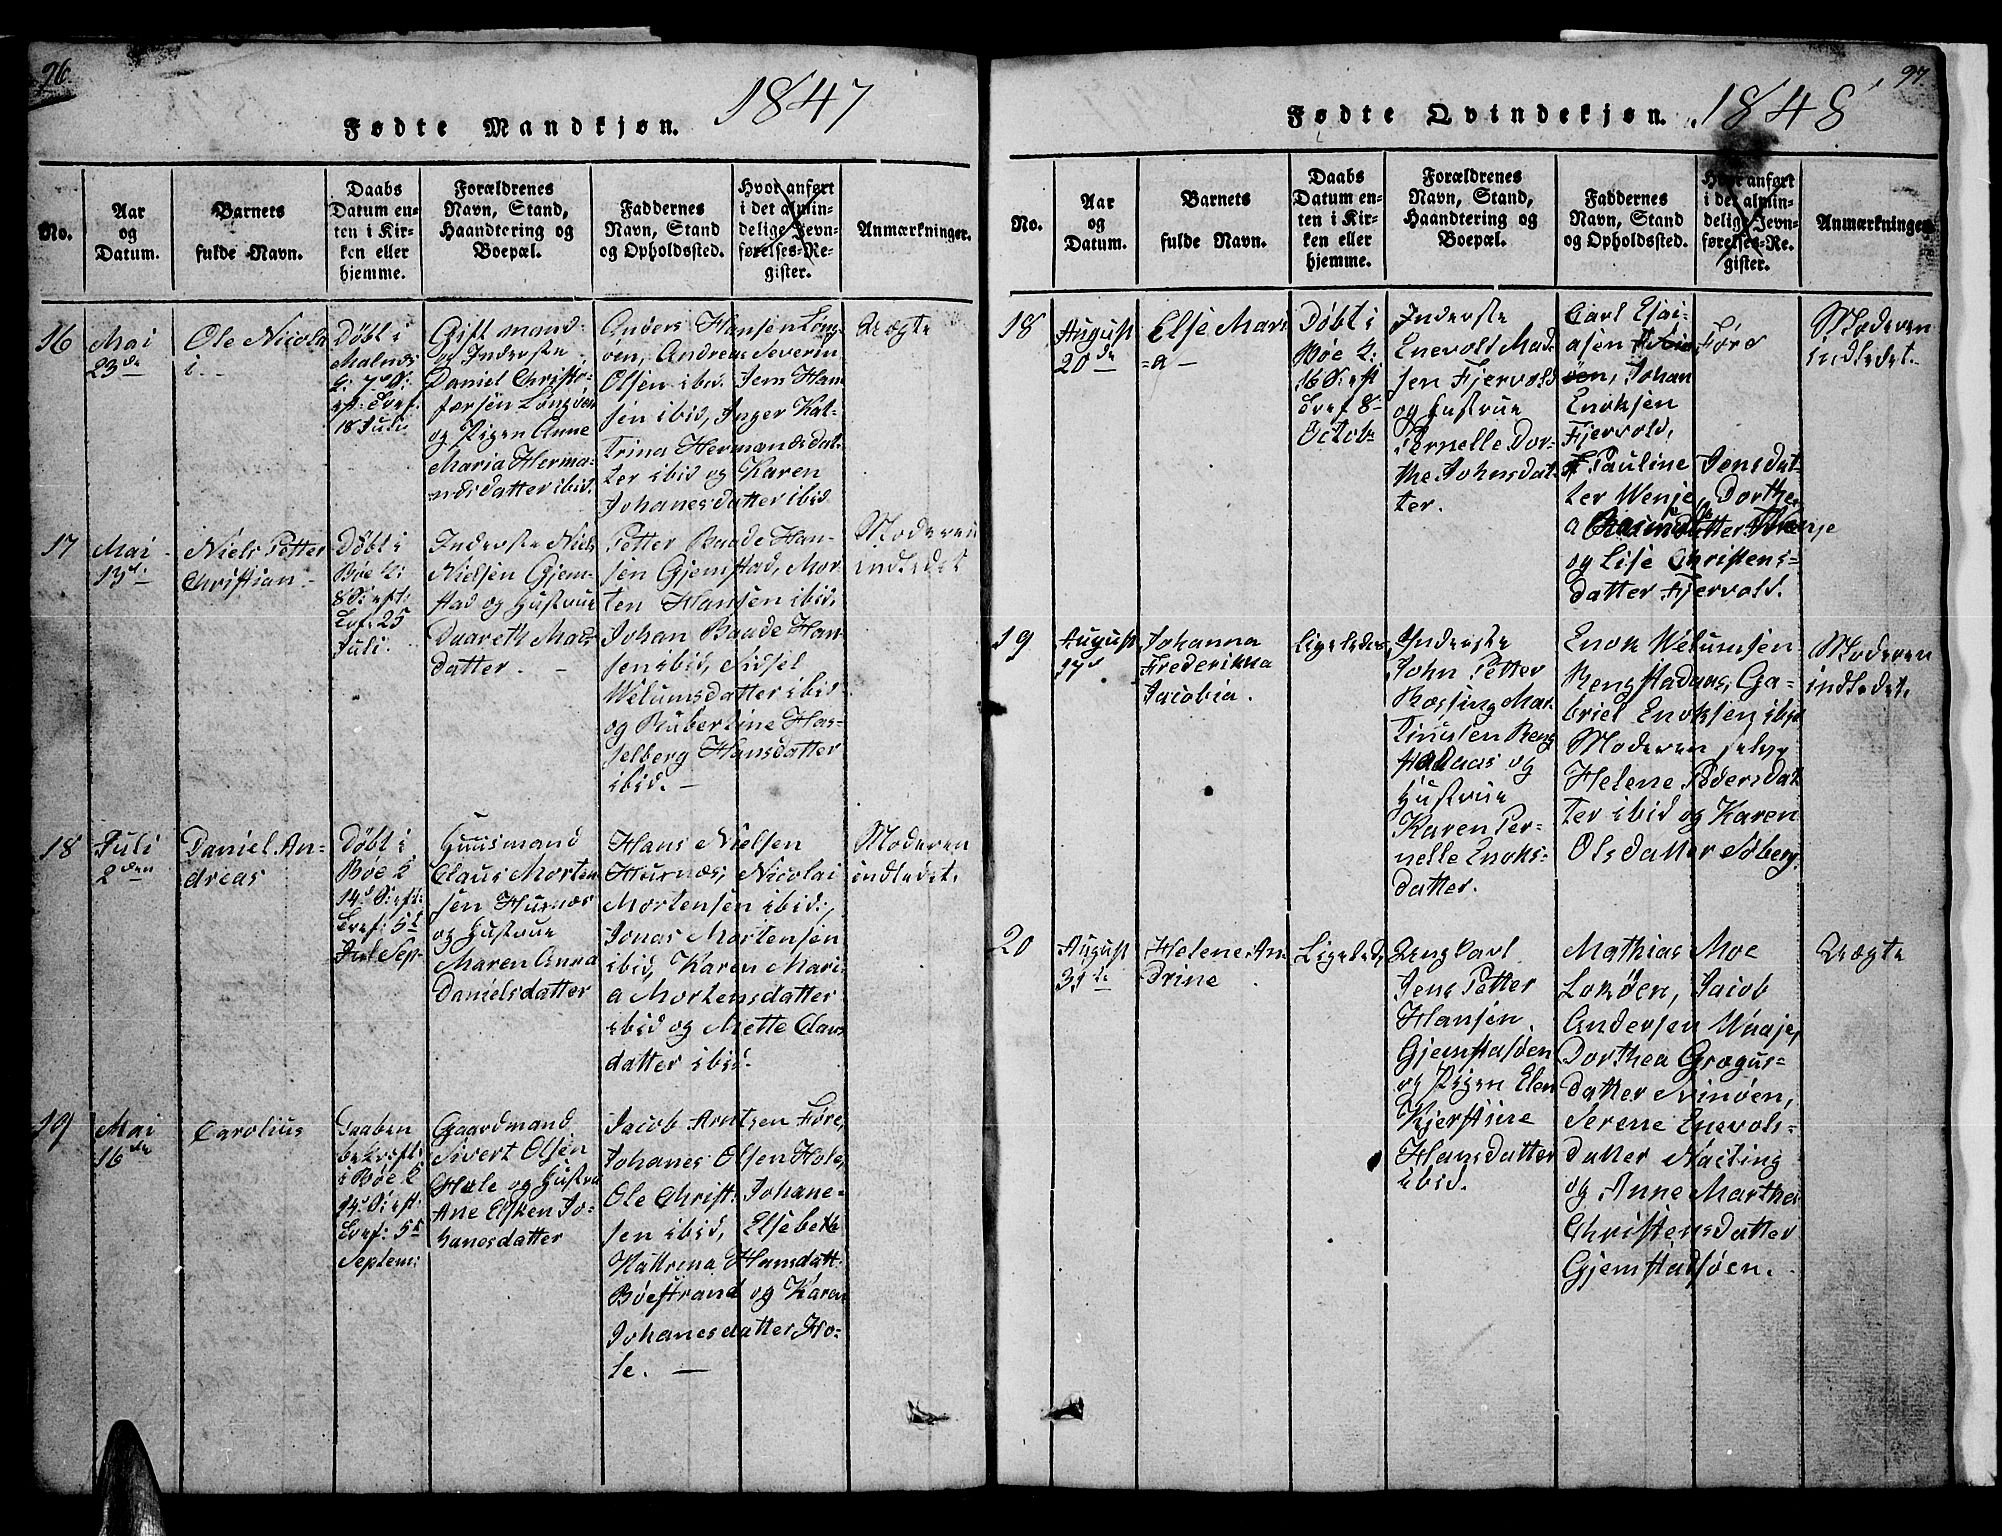 96.
1847
Fødte Mandkjøn.
No.
Aar
og
Datum.
Barnets
fulde Navn.
Daabs
Datum en-
ten i Kir-
ken eller
hjemme.
Forældrenes
Navn, Stand,
Haandtering og
Boepæl.
Faddernes
Navn, Stand
og Opholdssted.
Hvor anført
i det almin-
delige Jevn-
førelses-Re-
gister.
Anmærkninger.
16
Mai
23de
Ole Nicola
i. -
Døbt i
Malnes
K: 7de S:
eft: Tref:
18 Juli
Gift mand
og Inderste
Daniel Christo-
fersen Langøen
og Pigen Anne
Maria Herma-
nsdatter ibid.
Anders Hansen Lang-
øen, Andreas Severin
Olsen ibid. Jens Han
sen ibid, Inger Kat-
trina Hermansdat-
ter ibid og Karen
Johanesdatter ibid
Uægte
17
Mai
13d:
Niels Petter
Christian -
Døbt i
Bøe K:
8 S: eft:
Tref: 25
Juli
Inderste Niels
Nielsen Gjem-
stad og Hustrue
Maes
datter. -
Petter Baade Han-
sen Gjemstad, Mor-
ten Hansen ibid.
Johan Baade Han-
sen ibid, Sidsel
Welumsdatter ibid
og Rubertine Has-
selberg Hansdatter
ibid. -
Moderen
indledet
18
Juli
2den
Daniel An-
dreas
Døbt i
Bøe K
14d S: eft:
Tref: 5t
Sep-
Huusmand
Claus Morten
sen Husnæs
og Hustrue
Maren Anna
Danielsdatter
Hans Nielsen
Husnæs, Nicolai
Mortensen ibid:,
Jonas Mortensen
ibid, Karen Mari-
a Mortensdatter
ibid og Mette Claus
datter ibid.
Moderen
indledet.
19
Mai
16de
Carolius
Daaben
bekræft:
i Bøe K
14d S: eft
Tref: 5t
Septem:
Gaardmand
Sivert Olsen
Hole og Hustru
Ane Elsken Jo-
hanesdatter
Jacob Arntsen Føre,
Johanes Olsen Hole,
Ole Christ: Johane-
sen ibid, Elsebeth
Kattrina Hansdatt:
Bøestrand og Karen
Johanesdatter Ho-
le. -
97.
1848
Fødte Qvindekjøn.
No.
Aar
og
Datum.
Barnets
fulde Navn.
Daabs
Datum en-
ten i Kir-
ken eller
hjemme.
Forældrenes
Navn, Stand,
Haandtering og
Boepæl.
Faddernes
Navn, Stand
og Opholdssted.
Hvor anført
i det almin-
delige Jevn-
førelses-Re-
gister.
Anmærkninger.
18
August
20de
Else Mari
=a -
Døbt i
Bøe K:
16 S: eft
Tref 8-
Octob:
Inderste
Enevold Mad
sen Fjervold
og Hustrue
Pernelle Dor-
the Johnsdat-
ter.
Carl Esai-
asen Føre
Johan
Enoksen
Fjervold,
Pauline Jensdat-
ter Wenje, Dorthe
a
og Lise Christens-
datter Fjervold.
Moderen
indledet.
19
August
17d
Johanna
Frederikka
Jacobia.
Ligeledes
Inderste
John Petter
Rossing Mar-
tinussen Reng
stadaas og
Hustrue
Karen Per-
nelle Enoks-
datter.
Enok Welumsen
Rengstadaas, Ga-
briel Enoksen ibid
Moderen selv,
Helene Pedersdat
ter ibid og Karen
Olsdatter Søberg.
Moderen
indledet.
20
August
31te
Helene An
drine
Ligeled,
Ungkarl
Jens Petter
Hansen
Gjemstasøen
og Pigen Elen
Kjerstine
Hansdatter
ibid.
Mathias Moe
Lokøen, Jacob
Andersen Waaje,
Dorthea Grægus-
datter Ninøen,
Serene Enevols-
datter
og Anne Marthe
Christensdatter
Gjemstadsøen.
Uægte